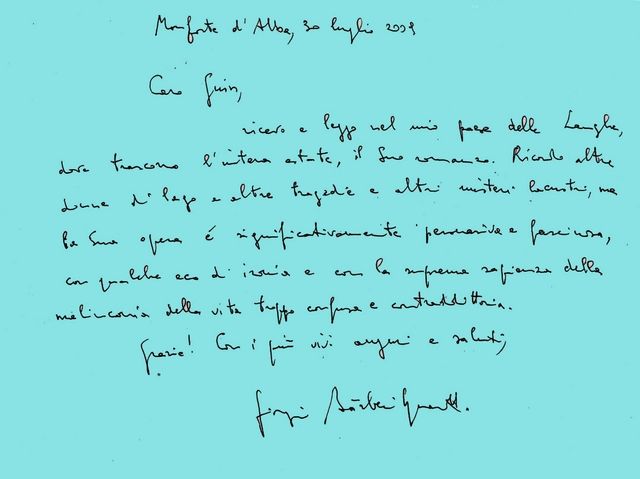 Monforte d'Alba, 30 luglio 2009
Caro
ricevo e leggo nel mio paese delle Langhe,
dove trascorro l'intera estate, il Suo romanzo. Ricordo altre
donne di lago e altre tragedie e altri misteri lacustri, ma
la Sua opera é significativamente persuasiva e fascinosa,
con qualche eco di ironia e con la suprema sapienza della
malinconia della vita troppo confusa e contraddittoria.
Grazie! Con i più vivi auguri e saluti,
Giorgio Bàrberi Squarotti.